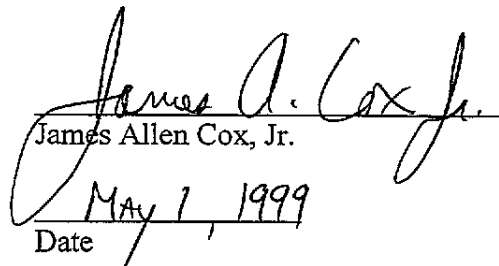 James A. Cox Jr.
James Allen Cox, Jr.
May 1, 1999
Date